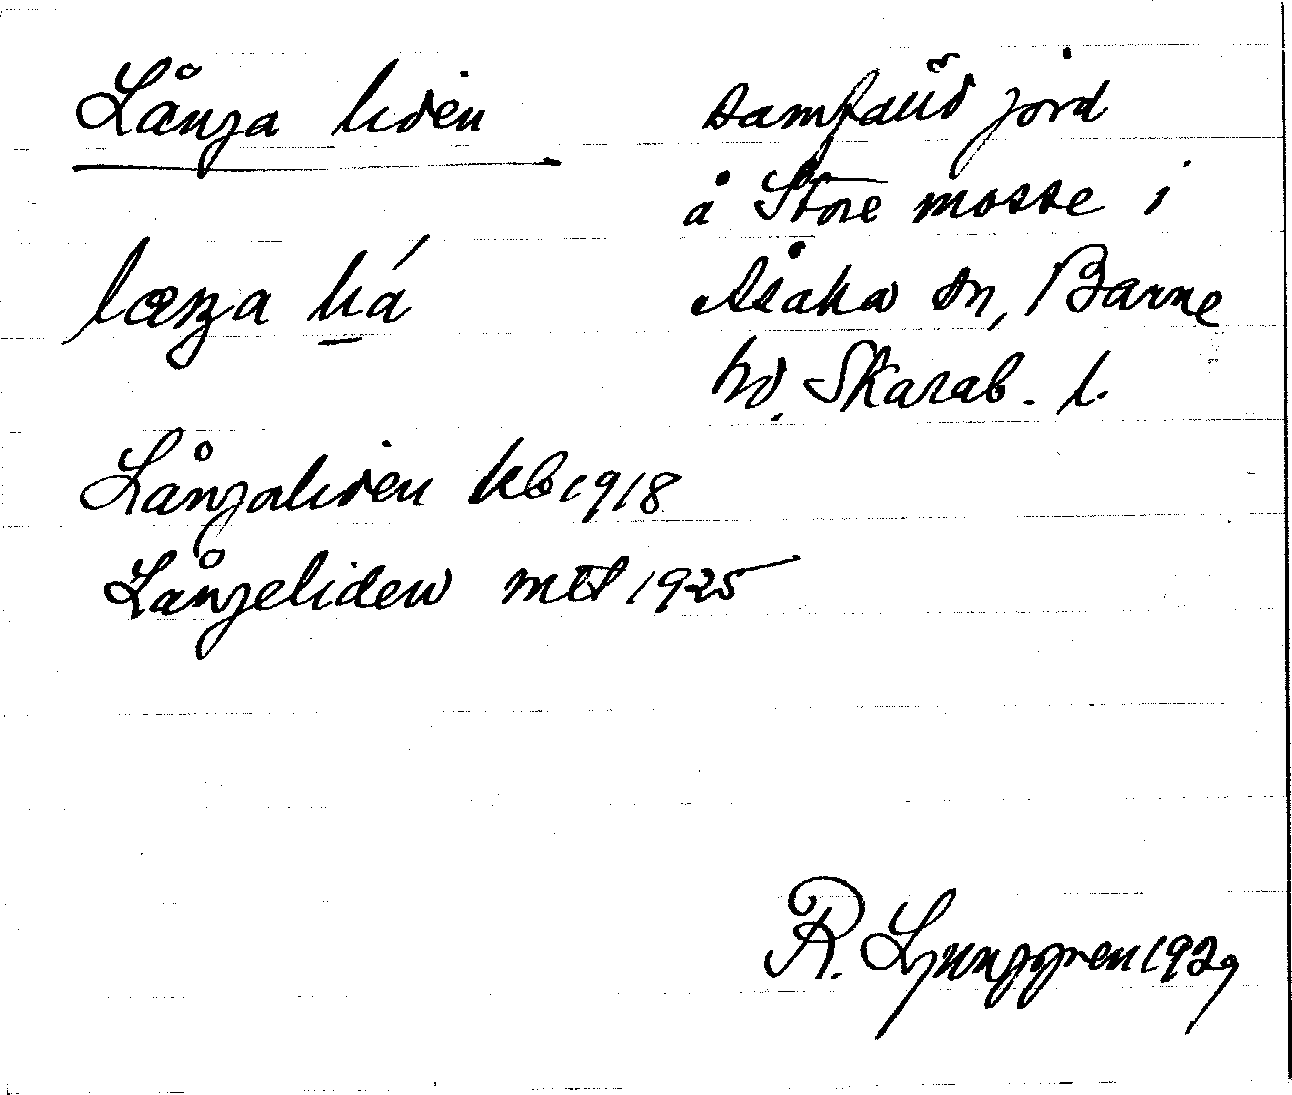 Långa liden
samfälld jord
å Store mosse i
Åsaka sn, Barne
hd. Skarab. l.
Långaliden kb 1918
Långeliden mtl 1925
R. Ljunggren 1929